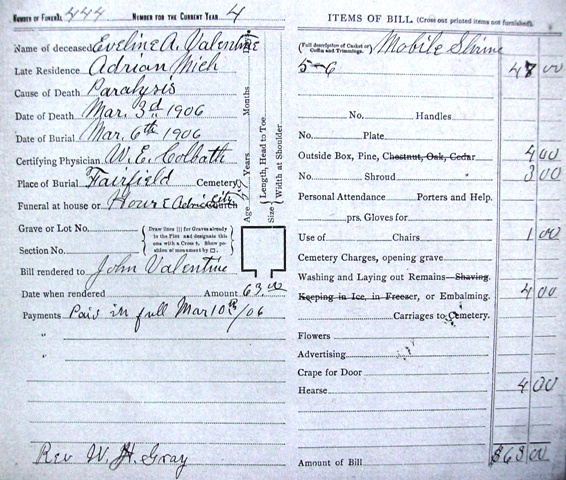 NUMBER OF FUNERAL 444 NUMBER FOR THE CURRENT YEAR 4
Name of deceased Eveline A. Valentine
Late Residence Adrian Mich
Cause of Death Paralysis
Date of Death Mar. 3d 1906
Date of Burial Mar. 6th 1906
Certifying Physician W. E. Colbath
Place of Burial Fairfield Cemetery
Funeral at house or church
Grave or Lot No.
Section No.
Draw lines ||| for Graves already in the Plot and designate this one with a Cross †. Show position of monument by □.
Bill rendered to John Valentine
Date when rendered Amount 63.00
Payments Paid in full Mar 10th/06
"
"
Rev W. H. Gray
Age Years Months Days
Size { Length, Head to Toe.
Width at Shoulder
ITEMS OF BILL (Cross out printed items not furnished).
(Full description of Casket or Coffin and Trimmings. Mobile Shrine
5-6 47 00
No. Handles
No. Plate
Outside Box, Pine, Chestnut, Oak, Cedar 4 00
No. Shroud 3 00
Personal Attendance Porters and Help.
prs. Gloves for
Use of Chairs 1 00
Cemetery Charges, opening grave
Washing and Laying out Remains—Shaving.
Keeping in Ice, in Freezer, or Embalming. 4 00
Carriages to Cemetery.
Flowers
Advertising
Crape for Door
Hearse 4 00
Amount of Bill $63 00